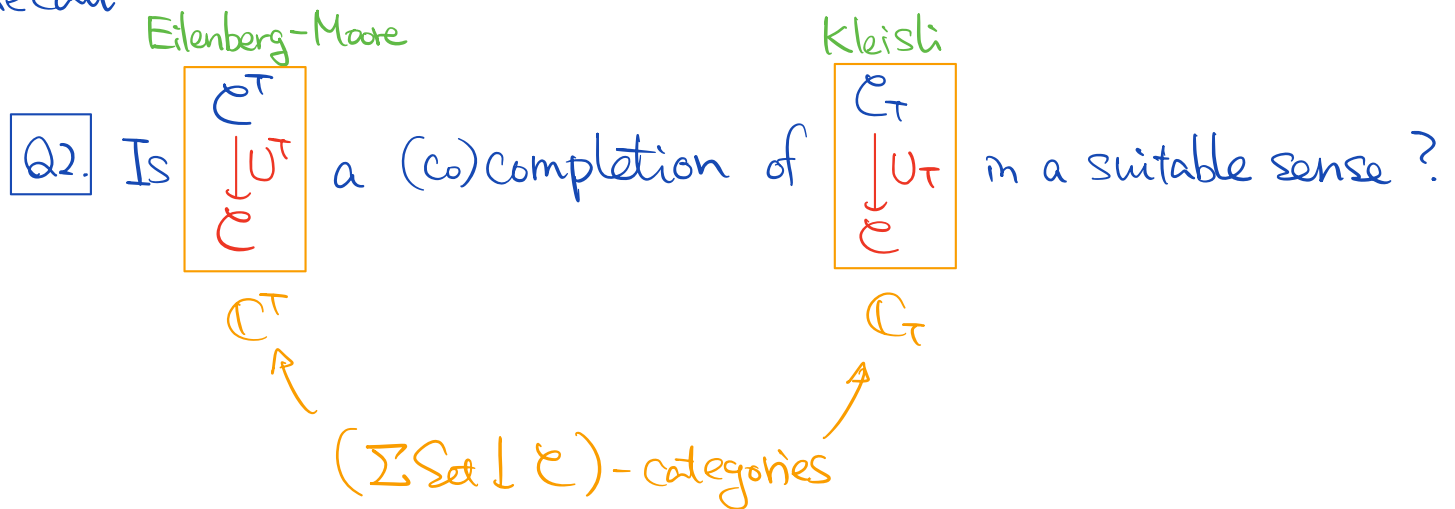 Eilenberg-Moore Kleisli
𝒞ᵀ 𝒞_T
Q2. Is ↓Uᵀ a (co)completion of ↓U_T in a suitable sense?
𝒞 𝒞
ℂᵀ ℂ_T
(ΣSet ↓ 𝒞)-categories